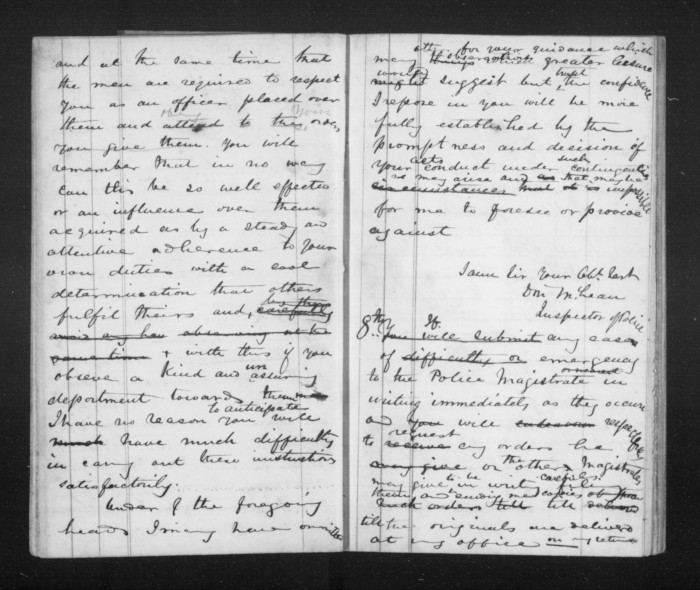 and at the same time that
the men are required to respect
you as an officer placed over
them and attend to the orders
you give them. You will
remember that in no way
can this be so well effected
or an influence over them
acquired as by a steady and
attentive adherence to your
own duties with a cool
determination that others
fulfil theirs and, carefully
same time & with this if you
observe a kind and un assuming
deportment towards them
to anticipate
I have no reason you will
much have much difficulty
in carry out these instructions
satisfactorily.
Under of the foregoing
heads I may have omitted
other for your guidance which
may things observations greater leisure
would might suggest but, the confidence
I repose in you will be more
fully established by the
promptness and decision of
acts such
your conduct under contingencies
as may arise and as that may be
circumstances impossible
for me to foresee or provide
against
I am Sir Your Obt. Sert
Don McLean
Inspector of Police
8thly To
You will submit any cases
of difficulty or emergency
to the Police Magistrate in
writing immediately as they occur
and you will respectfully
request
to receive any orders he
may give or the other Magistrates
may give in writ to be carefully
them and sending me copies
such orders till
till the originals are delivered
at my office on my return